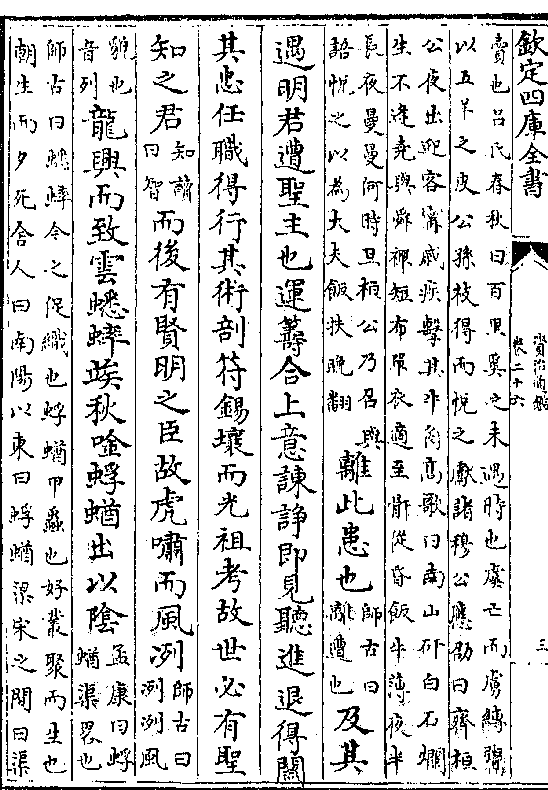 欽定四庫全書
資治通鑑
卷二十六
三
賣也吕氏春秋曰百里奚之未遇時也虞亡而虜縛鬻
以五羊之皮公孫枝得而悦之獻諸穆公應劭曰齊桓
公夜出迎客甯戚疾擊其牛角髙歌曰南山矸白石爛
生不逢堯與舜禪短布單衣適至骭從昏飯牛薄夜半
長夜曼曼何時旦桓公乃召與
語悦之以為大夫飯扶晚翻
離此患也
師古曰
離遭也
及其
遇明君遭聖主也運籌合上意諫諍即見聽進退得闗
其忠任職得行其術剖符錫壤而光祖考故世必有聖
知之君
知讀
曰智
而後有賢明之臣故虎嘯而風冽
師古曰
冽冽風
貌也
音列
龍興而致雲蟋蟀竢秋唫蜉蝤出以隂
孟康曰蜉
蝤渠畧也
師古曰蟋蟀今之促織也蜉蝤甲蟲也好叢聚而生也
朝生而夕死舍人曰南陽以東曰蜉蝤梁宋之間曰渠